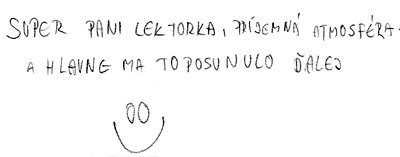 SUPER PANI LEKTORKA, PRÍJEMNÁ ATMOSFÉRA.
A HLAVNE MA TO POSUNULO ĎALEJ